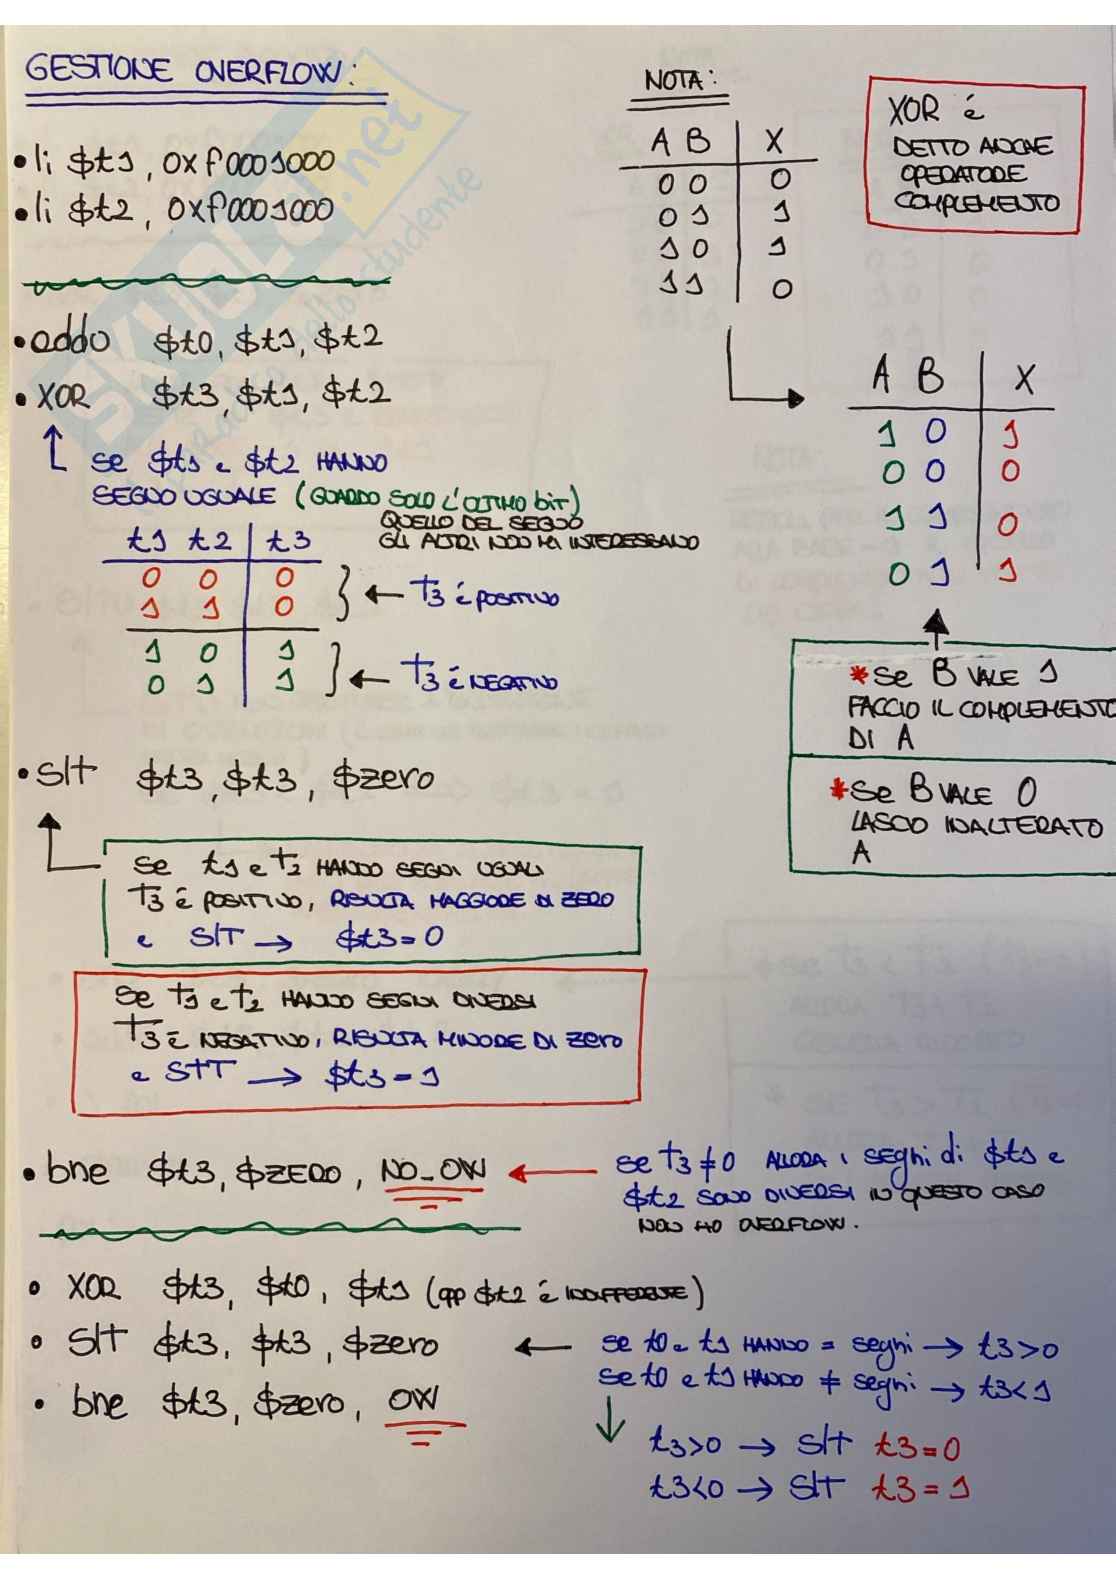 GESTIONE OVERFLOW:
• li $t1, 0xf0001000
• li $t2, 0xf0001000
• addo $t0, $t1, $t2
• XOR $t3, $t1, $t2
se $t1 e $t2 HANNO
SEGNO UGUALE (GUARDO SOLO L'ULTIMO bit)
QUELLO DEL SEGNO
GLI ALTRI NON MI INTERESSANO
t1 t2 t3
0 0 0
1 1 0
← T3 é POSITIVO
1 0 1
0 1 1
← T3 é NEGATIVO
• Slt $t3, $t3, $zero
se t1 e T2 HANNO SEGNI UGUALI
T3 é POSITIVO, RISULTA MAGGIORE DI ZERO
e SlT → $t3=0
Se T1 e T2 HANNO SEGNI DIVERSI
T3 é NEGATIVO, RISULTA MINORE DI zero
e STT → $t3=1
• bne $t3, $ZERO, NO_OW
← se T3 ≠ 0 ALLORA i segni di $t1 e
$t2 SONO DIVERSI IN QUESTO CASO
NON HO OVERFLOW.
• XOR $t3, $t0, $t1 (opp $t2 é INDIFFERENTE)
• Slt $t3, $t3, $zero
• bne $t3, $zero, OW
← se t0 e t1 HANNO = segni → t3>0
se t0 e t1 HANNO ≠ segni → t3<1
t3>0 → Slt t3=0
t3<0 → Slt t3=1
NOTA:
A B X
0 0 0
0 1 1
1 0 1
1 1 0
XOR é
DETTO ANCHE
OPERATORE
COMPLEMENTO
A B X
1 0 1
0 0 0
1 1 0
0 1 1
*Se B VALE 1
FACCIO IL COMPLEMENTO
DI A
*Se B VALE 0
LASCIO INALTERATO
A
SKUOLA.net